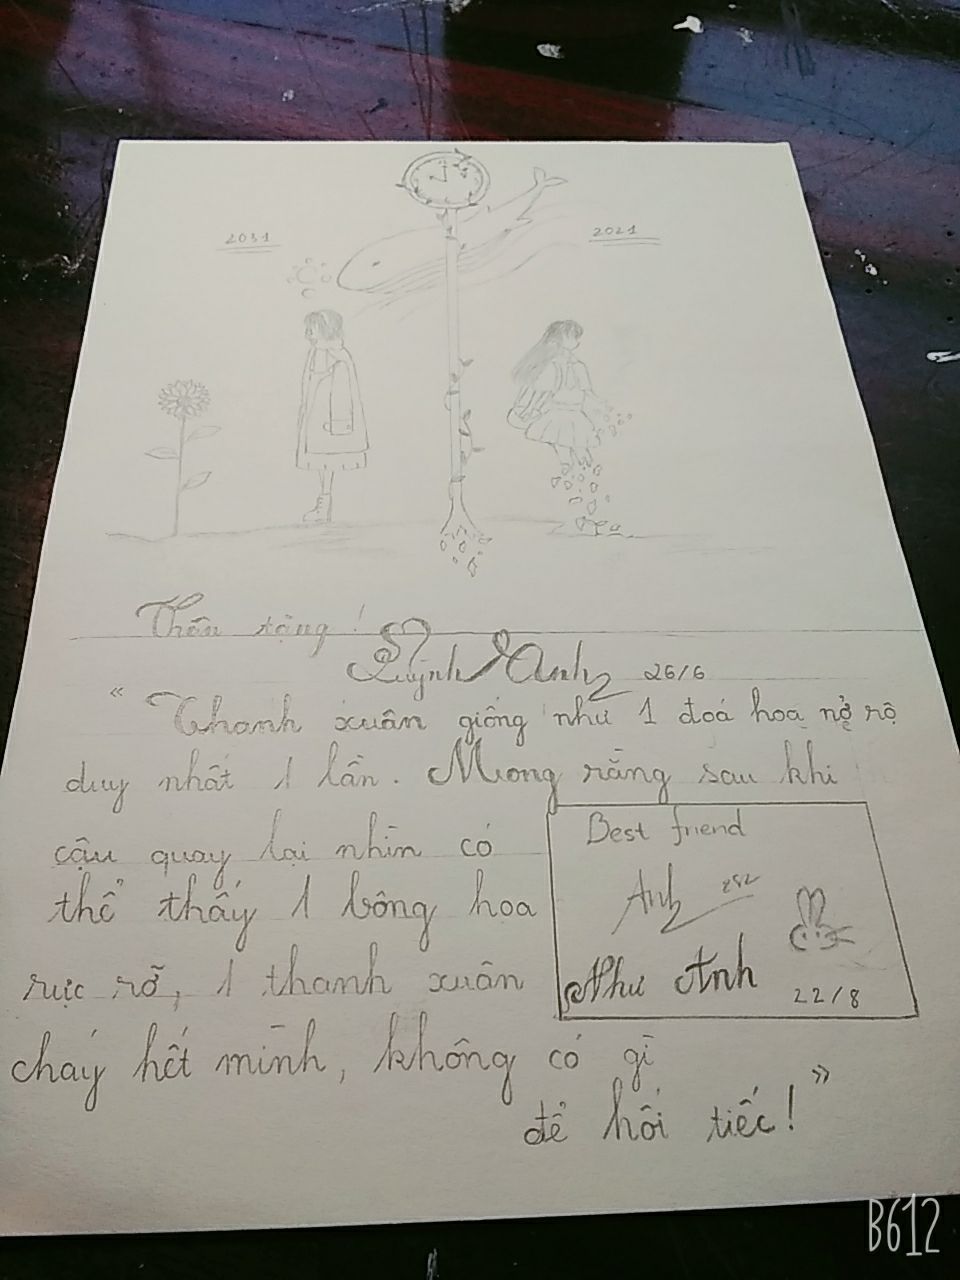 2031
2021
Thân tặng !
Quỳnh Anh 26/6
“ Thanh xuân giống như 1 đoá hoa nở rộ
duy nhất 1 lần. Mong rằng sau khi
cậu quay lại nhìn có
thể thấy 1 bông hoa
rực rỡ, 1 thanh xuân
cháy hết mình, không có gì
để hối tiếc! ”
Best friend
Anh
Như Anh
22/8
B612